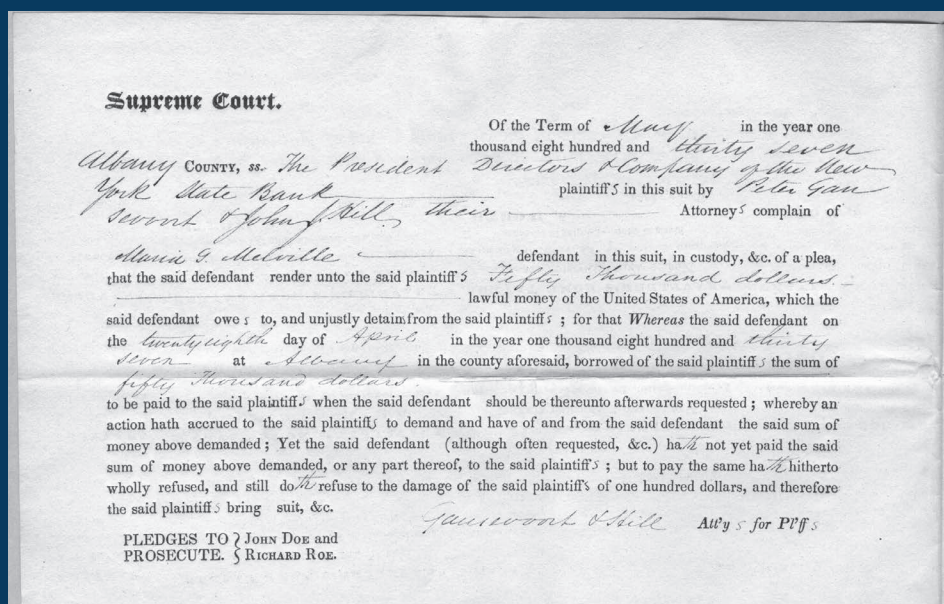 Supreme Court.
Of the Term of May in the year one
thousand eight hundred and thirty seven
Albany COUNTY, ss. The President Directors & Company of the New
York State Bank plaintiffs in this suit by Peter Gan
sevoort & John J. Hill, their Attorneys complain of
Maria G. Melville defendant in this suit, in custody, &c. of a plea,
that the said defendant render unto the said plaintiffs Fifty Thousand dollars
lawful money of the United States of America, which the
said defendant owes to, and unjustly detains from the said plaintiffs; for that Whereas the said defendant on
the twenty eighth day of April in the year one thousand eight hundred and thirty
seven at Albany in the county aforesaid, borrowed of the said plaintiffs the sum of
fifty Thousand dollars.
to be paid to the said plaintiffs when the said defendant should be thereunto afterwards requested; whereby an
action hath accrued to the said plaintiffs to demand and have of and from the said defendant the said sum of
money above demanded; Yet the said defendant (although often requested, &c.) hath not yet paid the said
sum of money above demanded, or any part thereof, to the said plaintiffs; but to pay the same hath hitherto
wholly refused, and still doth refuse to the damage of the said plaintiffs of one hundred dollars, and therefore
the said plaintiffs bring suit, &c.
Gansevoort & Hill Att'ys for Pl'ffs
PLEDGES TO } JOHN DOE and
PROSECUTE. } RICHARD ROE.